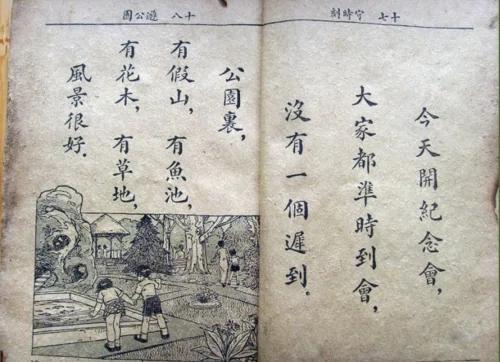 十七 守時刻
今天開紀念會,
大家都準時到會,
沒有一個遲到。
十八 遊公園
公園裏,
有假山,有魚池,
有花木,有草地,
風景很好.